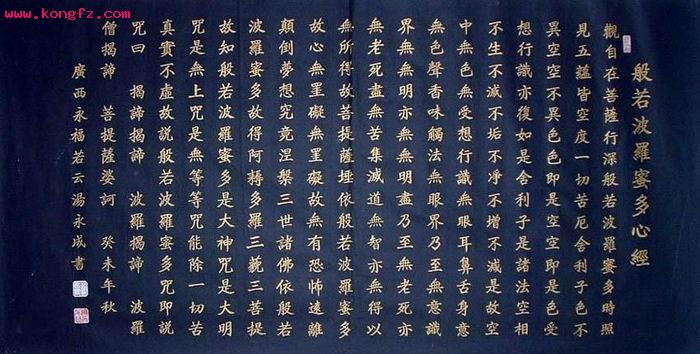 www.kongfz.com
般若波羅蜜多心經
觀自在菩薩行深般若波羅蜜多時照
見五蘊皆空度一切苦厄舍利子色不
異空空不異色色即是空空即是色受
想行識亦復如是舍利子是諸法空相
不生不滅不垢不淨不增不減是故空
中無色無受想行識無眼耳鼻舌身意
無色聲香味觸法無眼界乃至無意識
界無無明亦無無明盡乃至無老死亦
無老死盡無苦集滅道無智亦無得以
無所得故菩提薩埵依般若波羅蜜多
故心無罣礙無罣礙故無有恐怖遠離
顛倒夢想究竟涅槃三世諸佛依般若
波羅蜜多故得阿耨多羅三藐三菩提
故知般若波羅蜜多是大神咒是大明
咒是無上咒是無等等咒能除一切苦
真實不虛故說般若波羅蜜多咒即說
咒曰 揭諦揭諦 波羅揭諦 波羅
僧揭諦 菩提薩婆訶 癸未年秋
廣西永福若云湯永成書